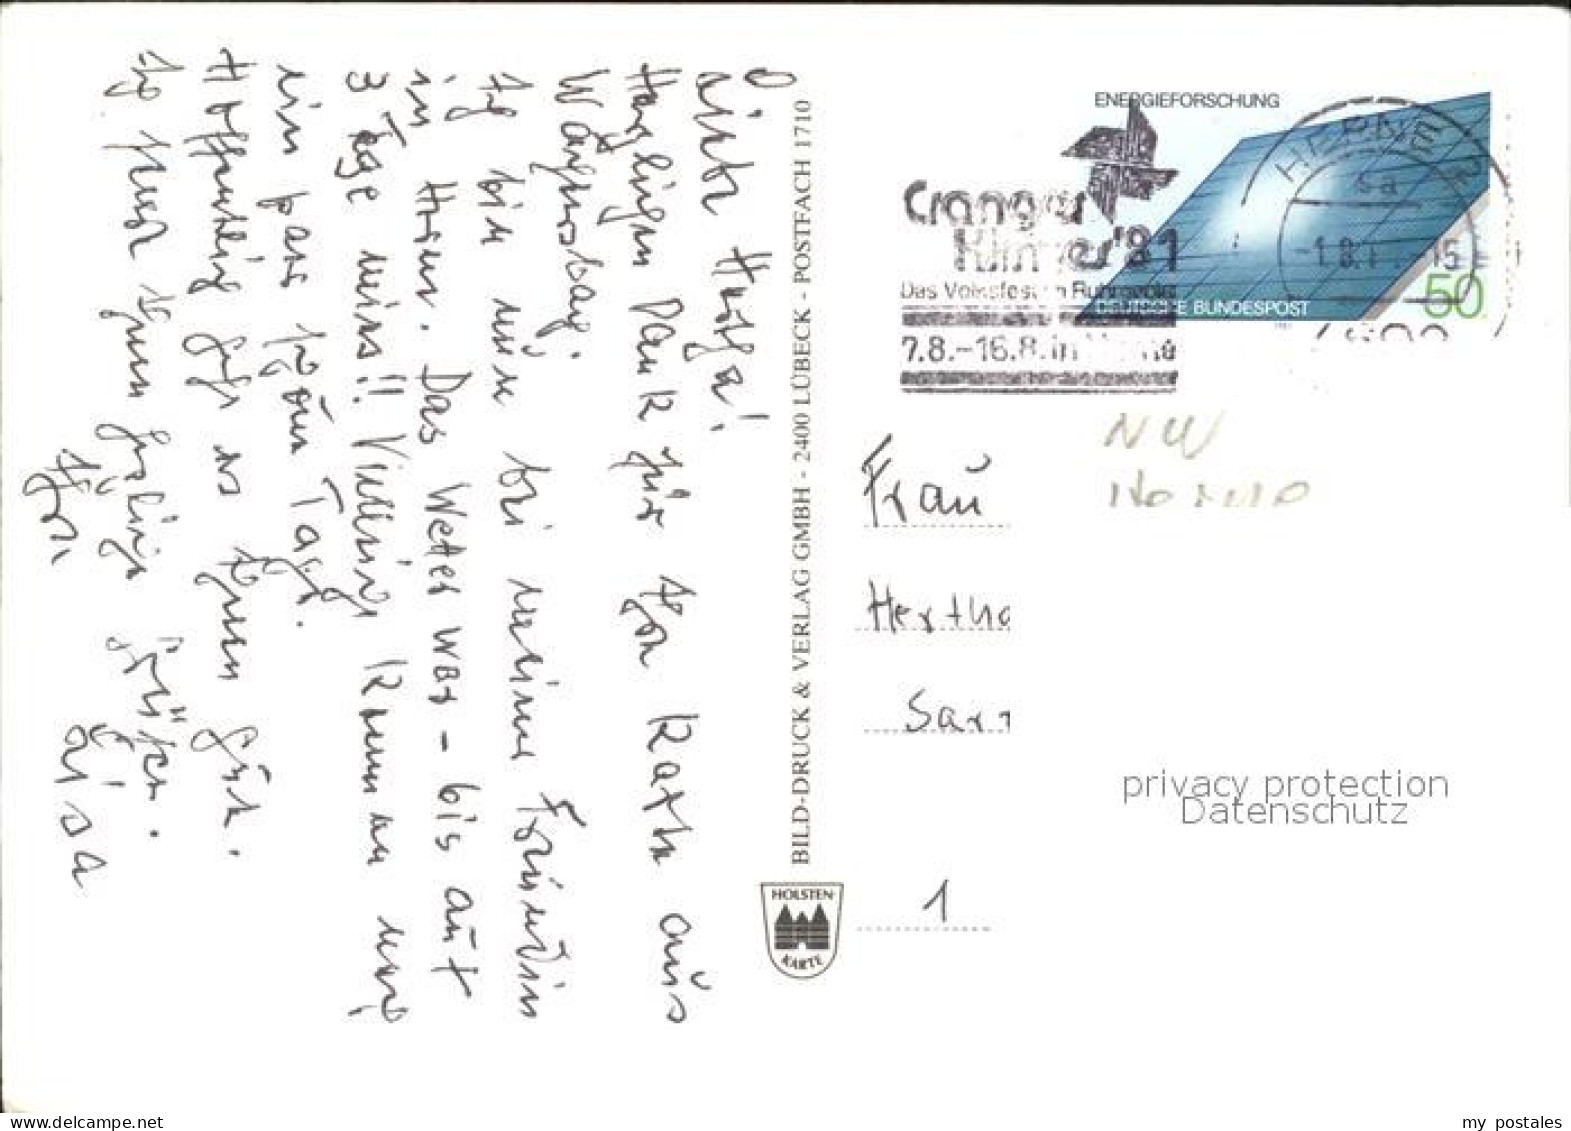 Liebe Hertha!
Herzlichen Dank für die Karte aus
Wangerooge.
Ich bin nun bei meiner Freundin
in Herne. Das Wetter war - bis auf
3 Tage mies!! Vielleicht kommen noch
ein paar schöne Tage.
Hoffentlich geht es Ihnen gut.
Ich sende Ihnen herzliche Grüße.
Ihre Lisa
BILD-DRUCK & VERLAG GMBH - 2400 LÜBECK - POSTFACH 1710
HOLSTEN-
KARTE
ENERGIEFORSCHUNG
DEUTSCHE BUNDESPOST
50
HERNE 2
sa
-1.8.
15
Cranger
Kirmes'81
Das Volksfest im Ruhrgebiet
7.8.-16.8. in Herne
NW
Herne
Frau
Hertha
Sar
1
privacy protection
Datenschutz
delcampe.net
my_postales